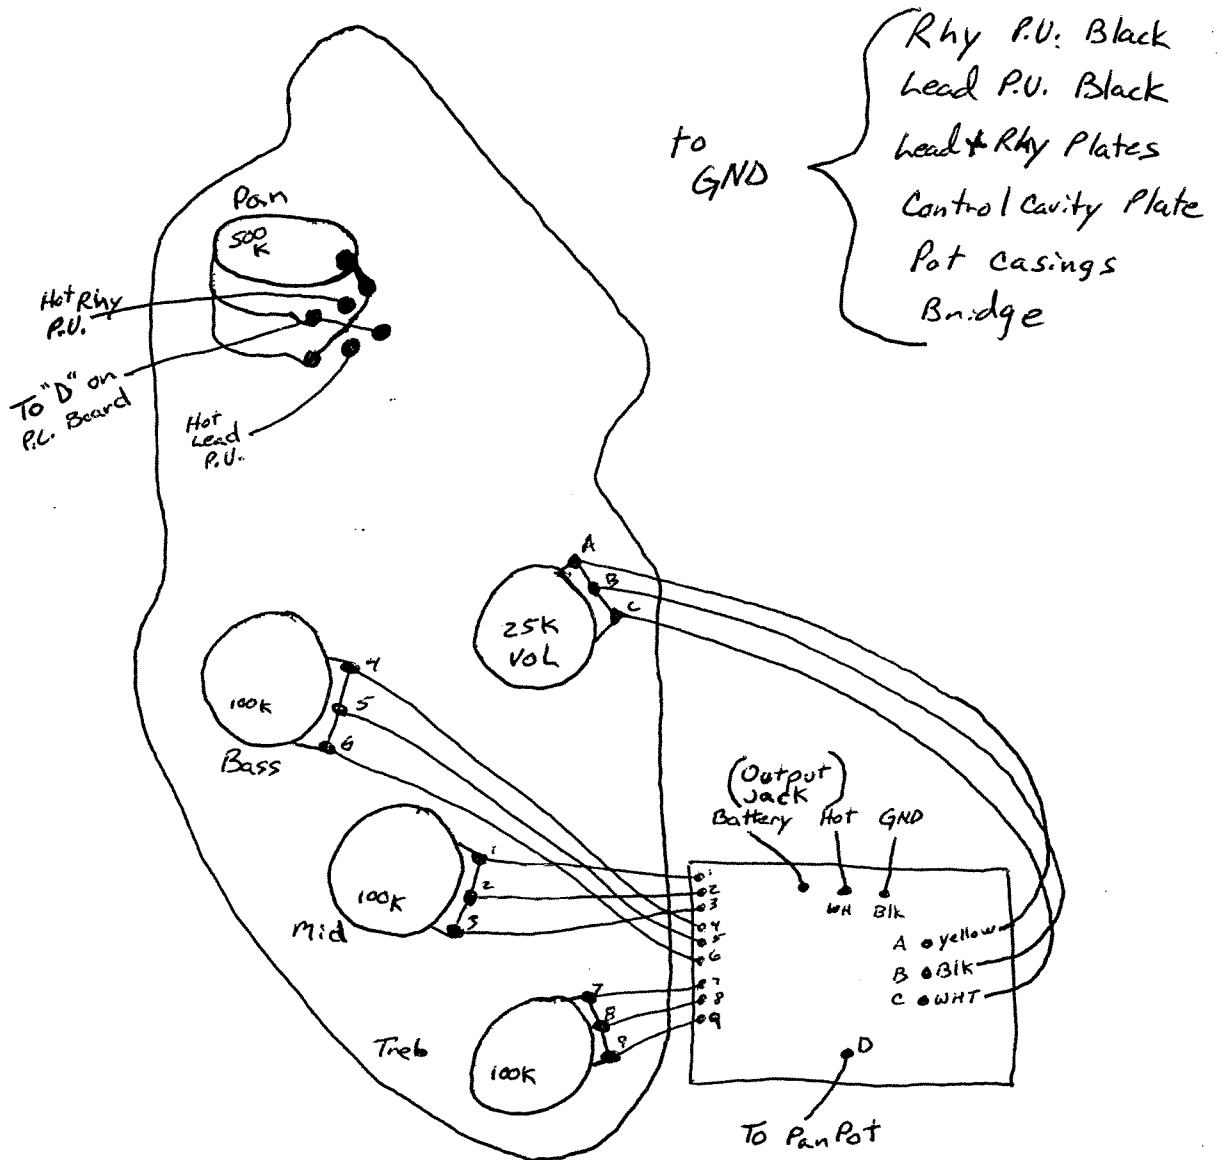 Rhy P.U. Black
Lead P.U. Black
Lead + Rhy Plates
Control Cavity Plate
Pot Casings
Bridge
to
GND
Pan
500
K
Hot Rhy
P.U.
To "D" on
P.C. Board
Hot
Lead
P.U.
A
B
C
25K
VOL
4
5
6
100K
Bass
1
2
3
100K
Mid
7
8
9
100K
Treb
(Output
Jack)
Battery Hot GND
WH Blk
1
2
3
4
5
6
7
8
9
A Yellow
B Blk
C WHT
D
To Pan Pot